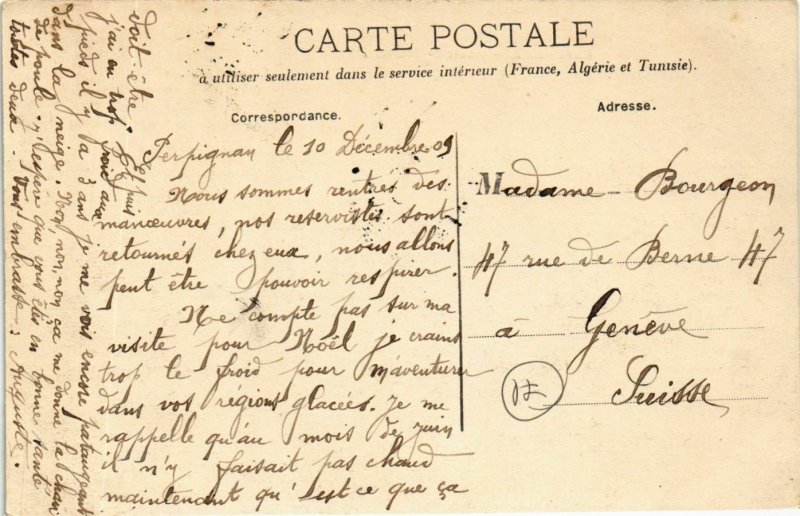 CARTE POSTALE
à utiliser seulement dans le service intérieur (France, Algérie et Tunisie).
Correspondance.
Adresse.
Perpignan le 10 Décembre 09
Nous sommes rentrés des
manœuvres, nos reservistes sont
retournés chez eux, nous allons
peut être pouvoir respirer.
Ne compte pas sur ma
visite pour Nöel je crains
trop le froid pour m'aventurer
dans vos régions glacées. Je me
rappelle qu'au mois de juin
il n'y faisait pas chaud
maintenant qu'est ce que ça
doit être. Et puis
j'ai eu trop froid aux
pieds il y a 3 ans je me vois encore pataugeant
dans la neige. Non, non, non ça me donne la chair
de poule. J'espère que vous êtes en bonne santé
toutes deux. Vous embrasse. Auguste.
Madame Bourgeon
47 rue de Berne 47
à Genève
Suisse